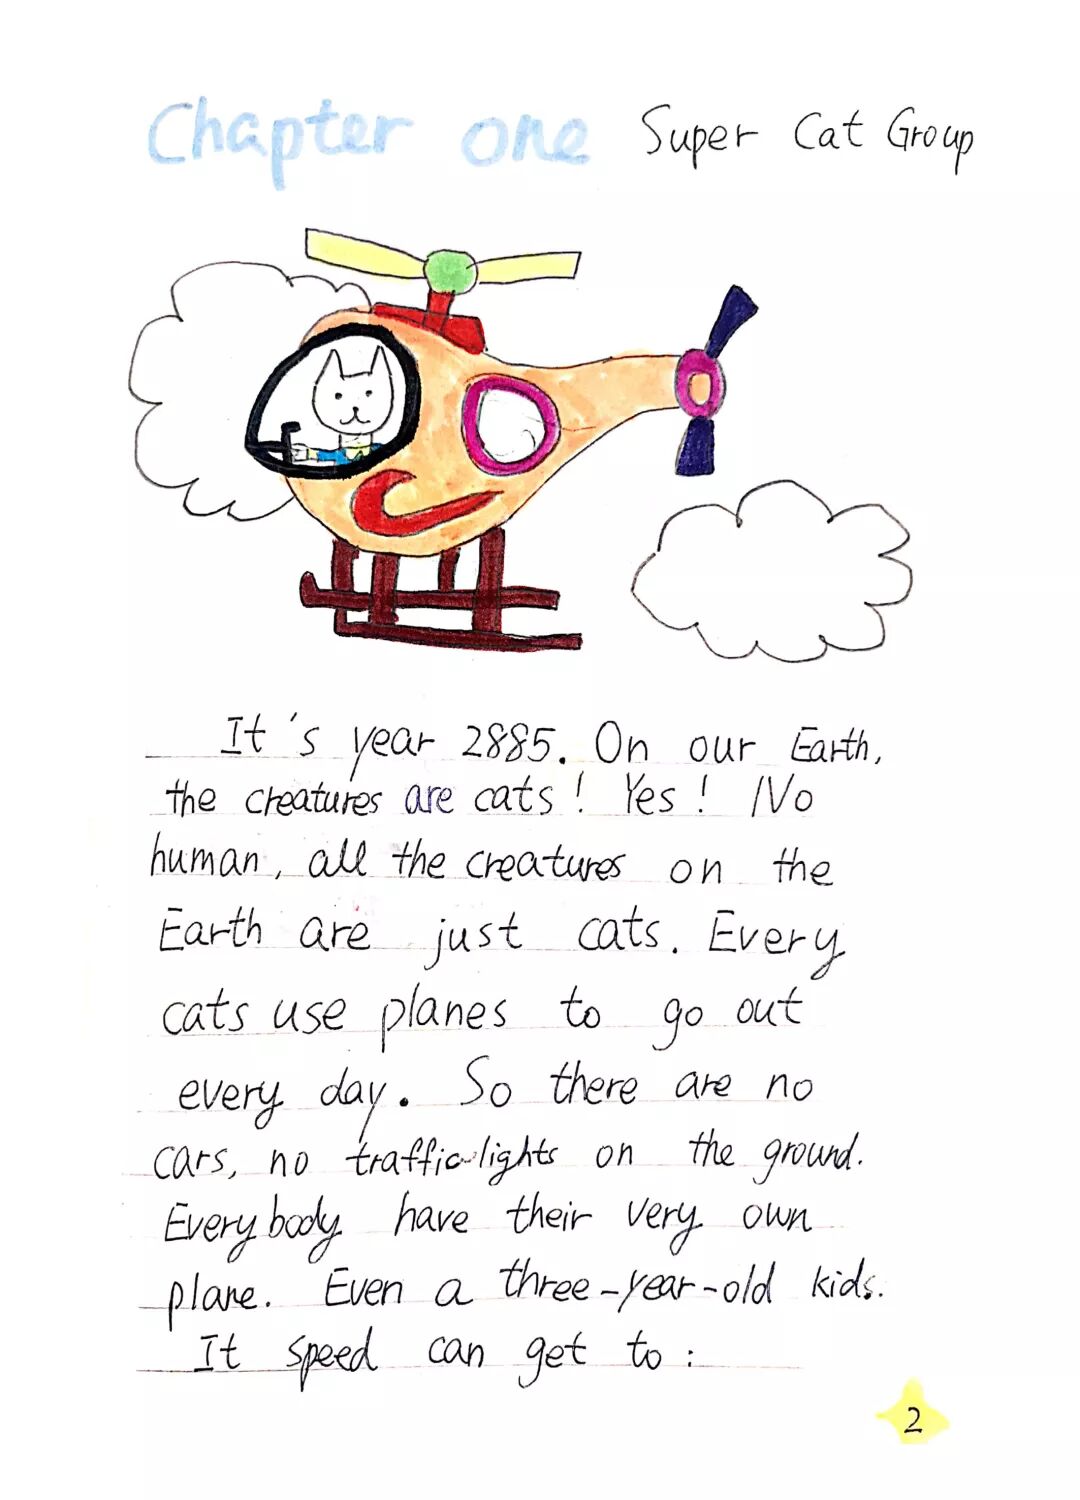 Chapter one Super Cat Group
It's year 2885. On our Earth,
the creatures are cats! Yes! No
human, all the creatures on the
Earth are just cats. Every
cats use planes to go out
every day. So there are no
cars, no traffic lights on the ground.
Everybody have their very own
plane. Even a three-year-old kids.
It speed can get to:
2